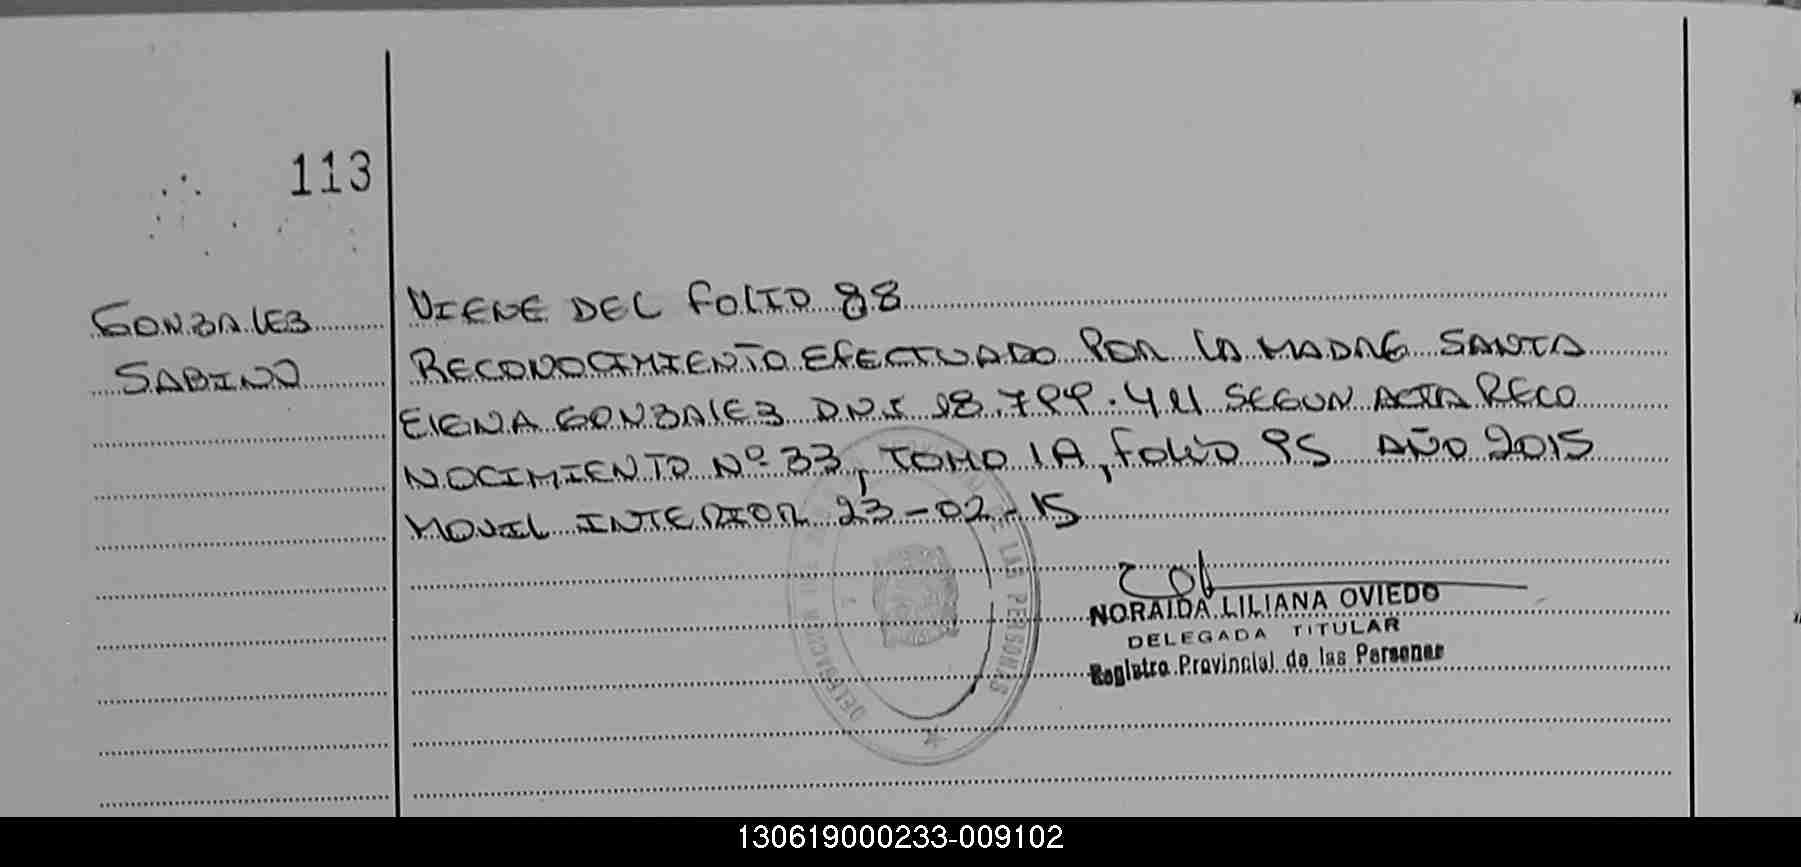 113
GONZALES
SABINO
VIENE DEL FOLIO 88
RECONOCIMIENTO EFECTUADO POR LA MADRE SANTA
ELENA GONZALES D.N.I 18.799.411 SEGUN ACTA RECO
NOCIMIENTO Nº 33, TOMO 1A, FOLIO 95 AÑO 2015
MOVIL INTERIOR 23-02-15
NORAIDA LILIANA OVIEDO
DELEGADA TITULAR
Registro Provincial de las Personas
LAS PERSONAS
130619000233-009102